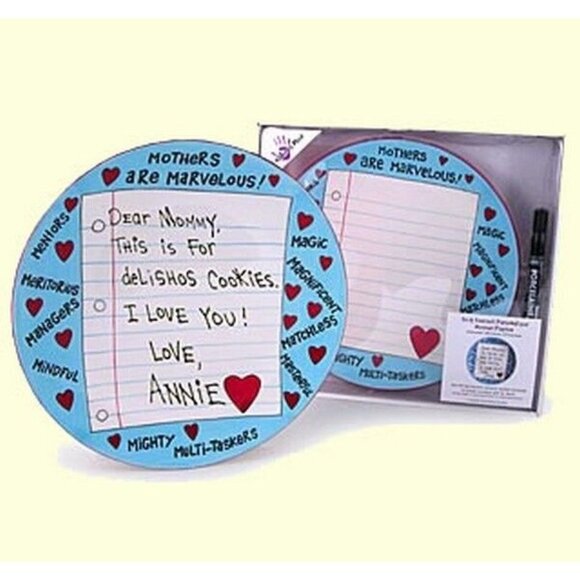 MOTHERS
are MARVELOUS!
MENTORS
MERITORIOUS
MANAGERS
MINDFUL
MIGHTY
MULTI-TASKERS
MAGIC
MAGNIFICENT
MATCHLESS
MASTERFUL
DEAR MOMMY,
THIS IS FOR
deLISHOS COOKIES.
I LOVE YOU!
LOVE,
ANNIE
MOTHERS
are MARVELOUS!
MAGIC
MAGNIFICENT
MATCHLESS
MIGHTY
MULTI-TASKERS